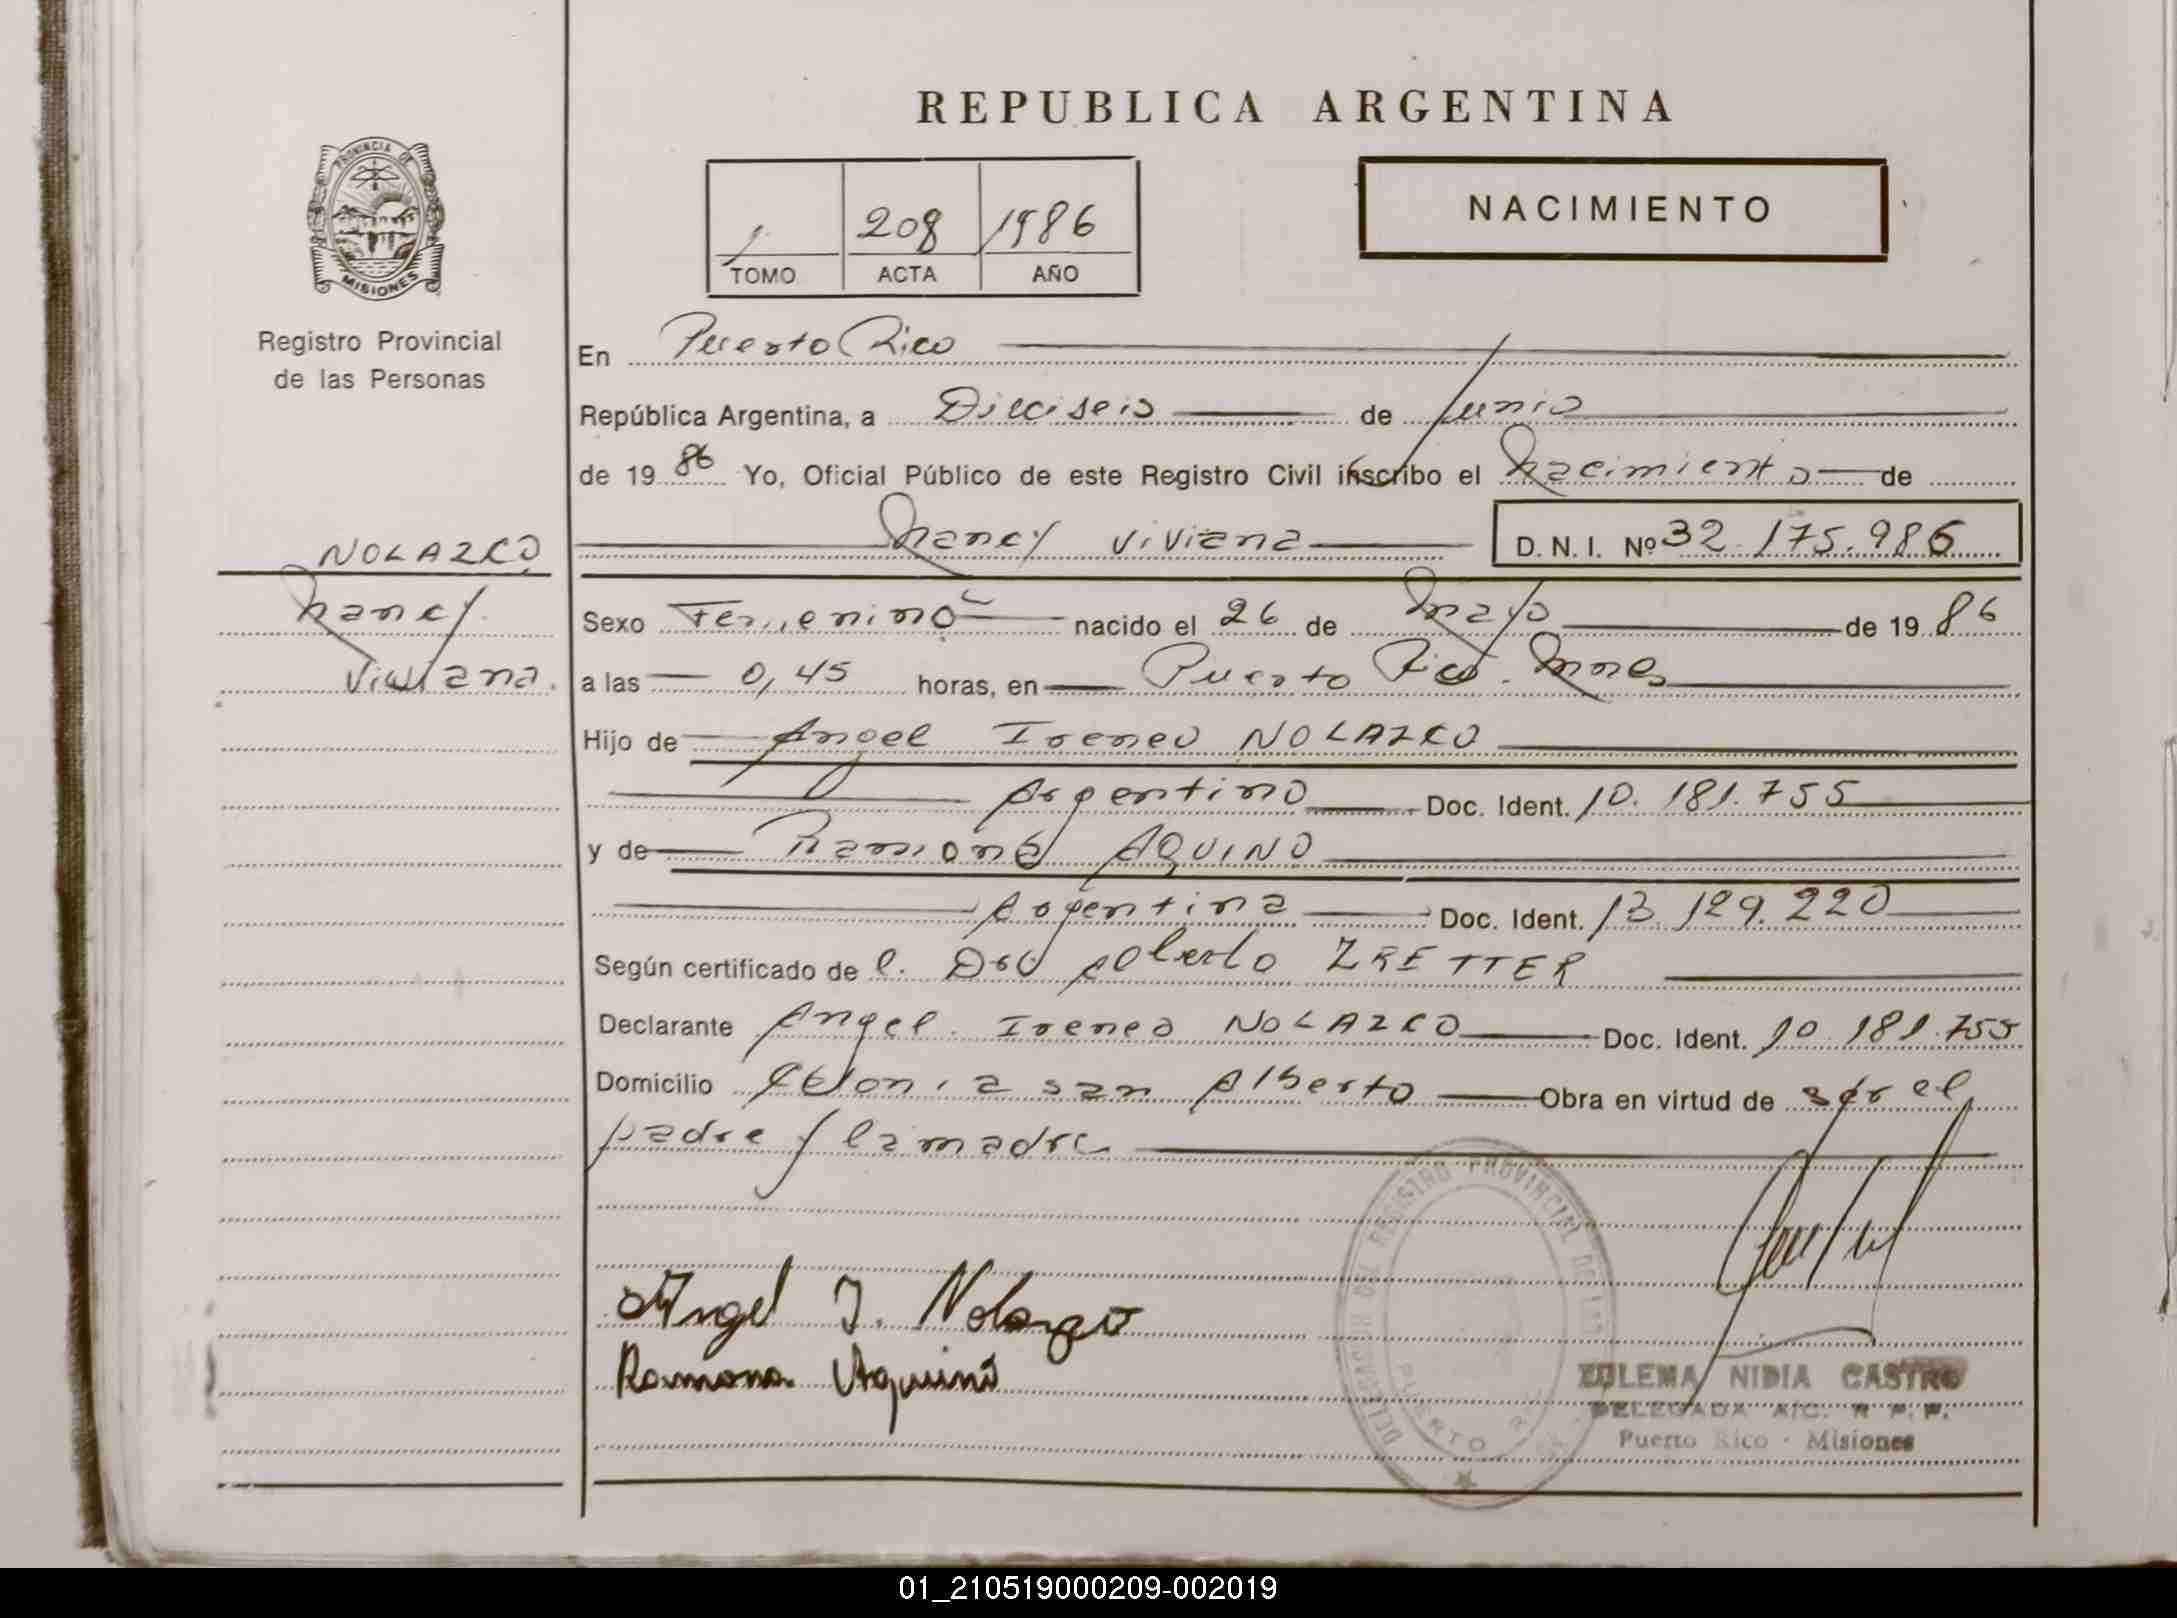 REPUBLICA ARGENTINA
PROVINCIA DE
MISIONES
Registro Provincial
de las Personas
1 208 1986
TOMO ACTA AÑO
NACIMIENTO
En Puerto Rico
República Argentina, a Dieciseis de Junio
de 19 86 Yo, Oficial Público de este Registro Civil inscribo el Nacimiento de
Nancy Viviana D. N. I. Nº 32.175.986
NOLAZCO
Nancy
Viviana.
Sexo Femenino nacido el 26 de Mayo de 19 86
a las 0,45 horas, en Puerto Rico. Mnes
Hijo de Angel Ireneo NOLAZCO
Argentino Doc. Ident. 10.181.755
y de Ramona AQUINO
Argentina Doc. Ident. 13.129.220
Según certificado de l. Dr. Alberto ZRETTER
Declarante Angel Ireneo NOLAZCO Doc. Ident. 10.181.755
Domicilio Colonia san Alberto Obra en virtud de ser el
padre y la madre
Angel I. Nolazco
Ramona Aquino
DELEGACION DEL REGISTRO PROVINCIAL DE LAS
PUERTO
ZULEMA NIDIA CASTRO
DELEGADA A/C. R P. P.
Puerto Rico - Misiones
01_210519000209-002019